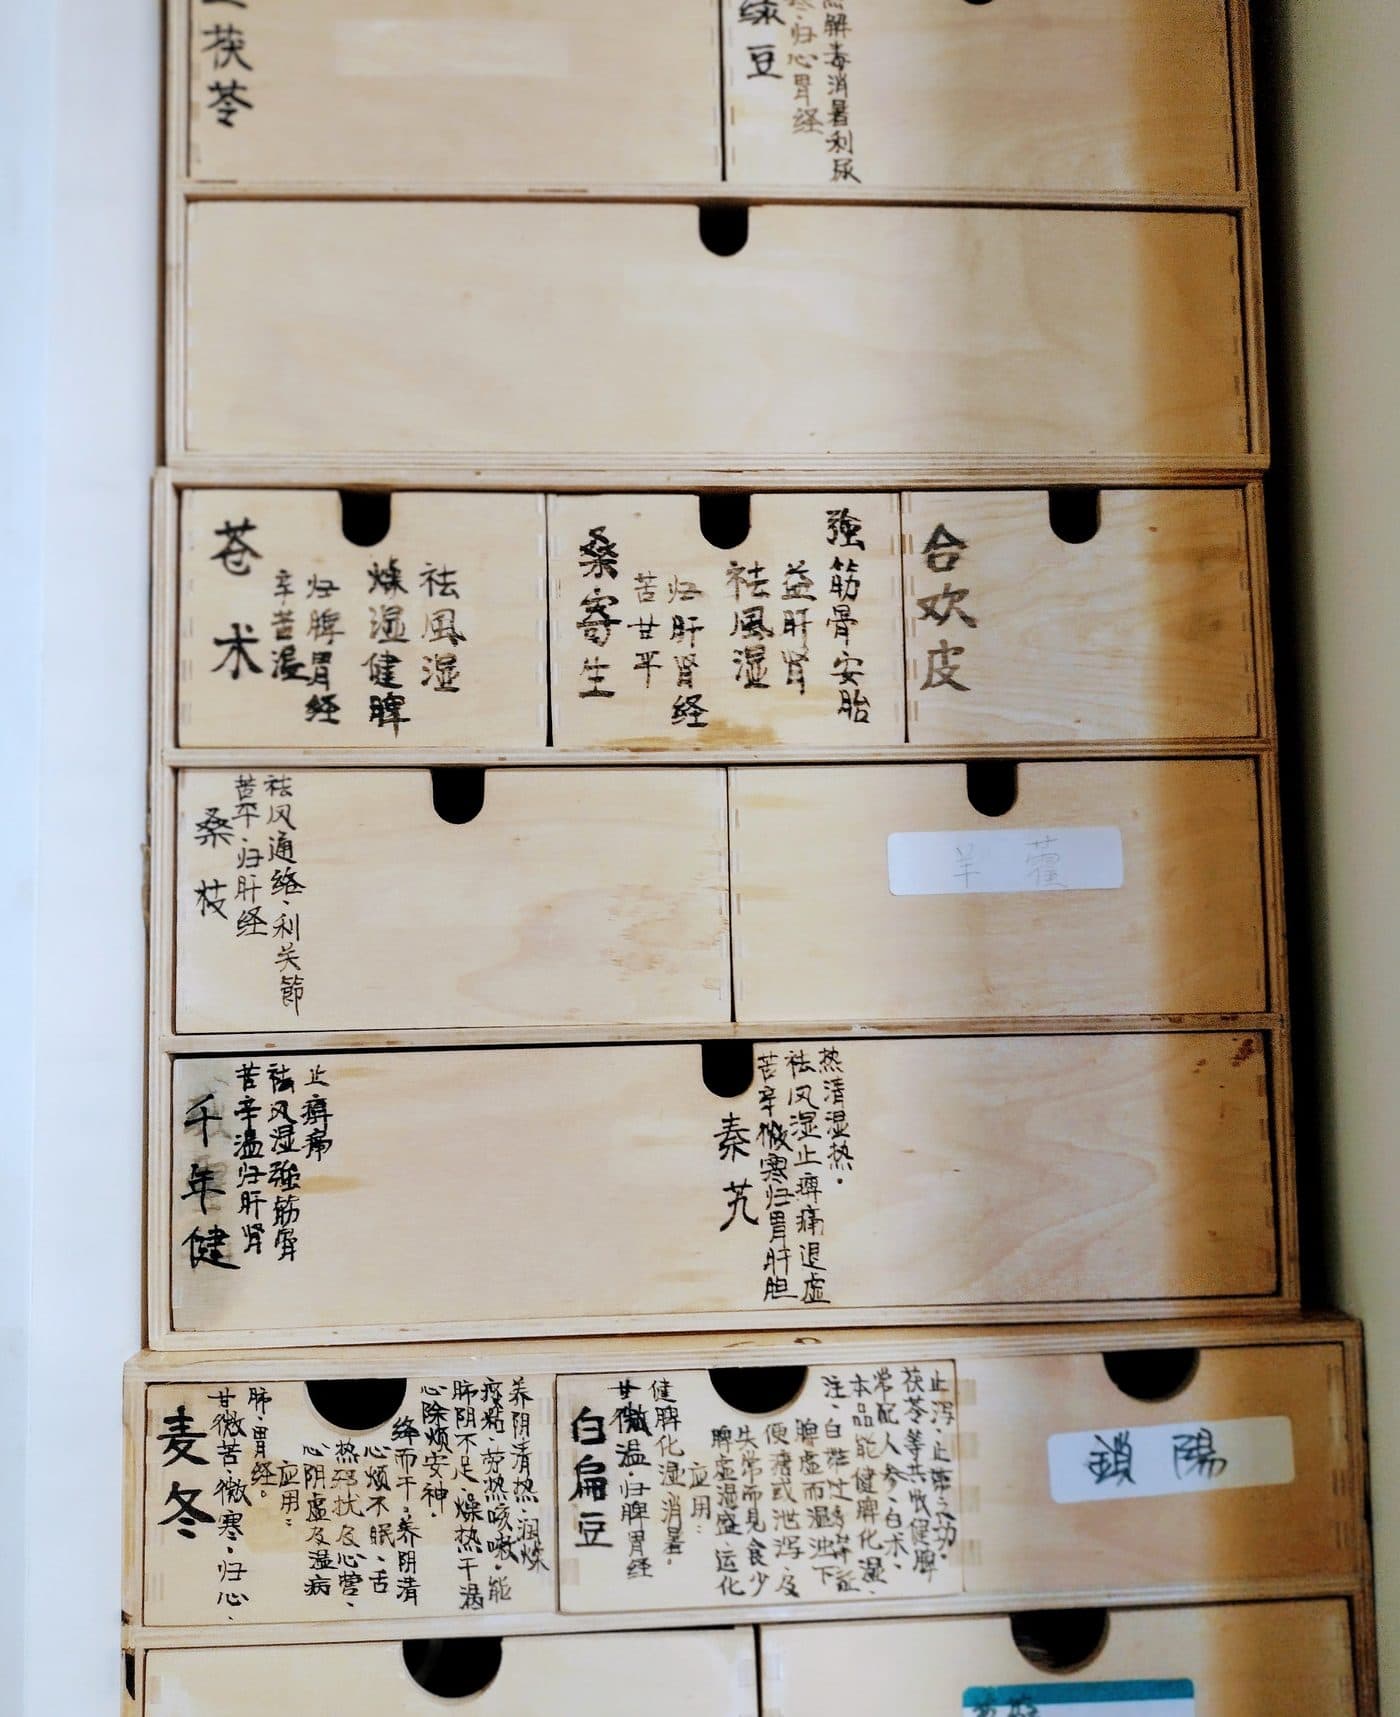 茯苓
绿豆
寒·归心胃经
解毒消暑利尿
苍术
辛苦温
归脾胃经
燥湿健脾
祛風湿
桑寄生
苦甘平
归肝肾经
祛風湿
益肝肾
強筋骨安胎
合欢皮
桑枝
苦平·归肝经
祛风通络·利关節
羊藿
千年健
苦辛温归肝肾
祛风湿強筋骨
止痹痛
秦艽
苦辛微寒归胃肝胆
祛风湿止痹痛退虚
热清湿热·
麦冬
甘微苦·微寒·归心、
肺·胃经。
应用:
心阴虚及温病
热邪扰及心营、
心烦不眠、舌
绛而干;养阴清
心除烦安神·
肺阴不足、燥热干渴
痰粘·劳热咳嗽·能
养阴清热·润燥
白扁豆
甘微温·归脾胃经
健脾化湿消暑。
应用:
脾虚湿盛·运化
失常而见食少
便溏或泄泻·及
脾虚而湿浊下
注、白带过多等証
本品能健脾化湿、
常配人参、白术、
茯苓等共收健脾
止泻·止带之功·
鎖陽